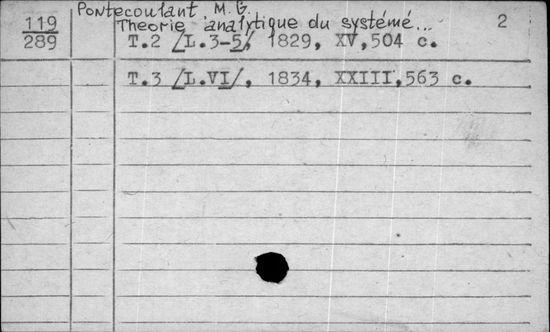 Pontecoulant M.G.
119 Theorie analytique du systémé... 2
289 T.2 /L.3-5/, 1829, XV,504 c.
T.3 /L.VI/, 1834, XXIII,563 c.